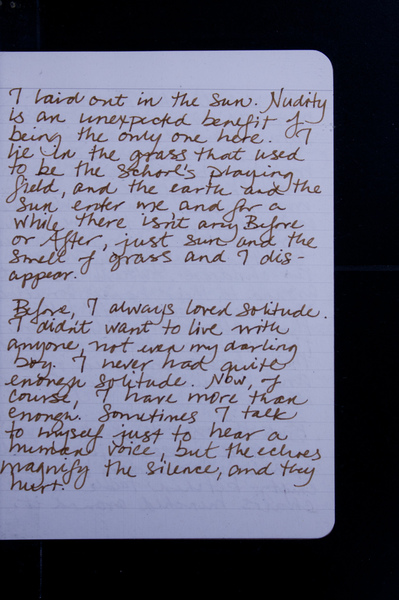 I laid out in the sun. Nudity
is an unexpected benefit of
being the only one here. I
lie in the grass that used
to be the school's playing
field, and the earth and the
sun enter me and for a
while there isn't any Before
or After, just sun and the
smell of grass and I dis-
appear.
Before, I always loved solitude.
I didn't want to live with
anyone, not even my darling
boy. I never had quite
enough solitude. Now, of
course, I have more than
enough. Sometimes I talk
to myself just to hear a
human voice, but the echoes
magnify the silence, and they
hurt.